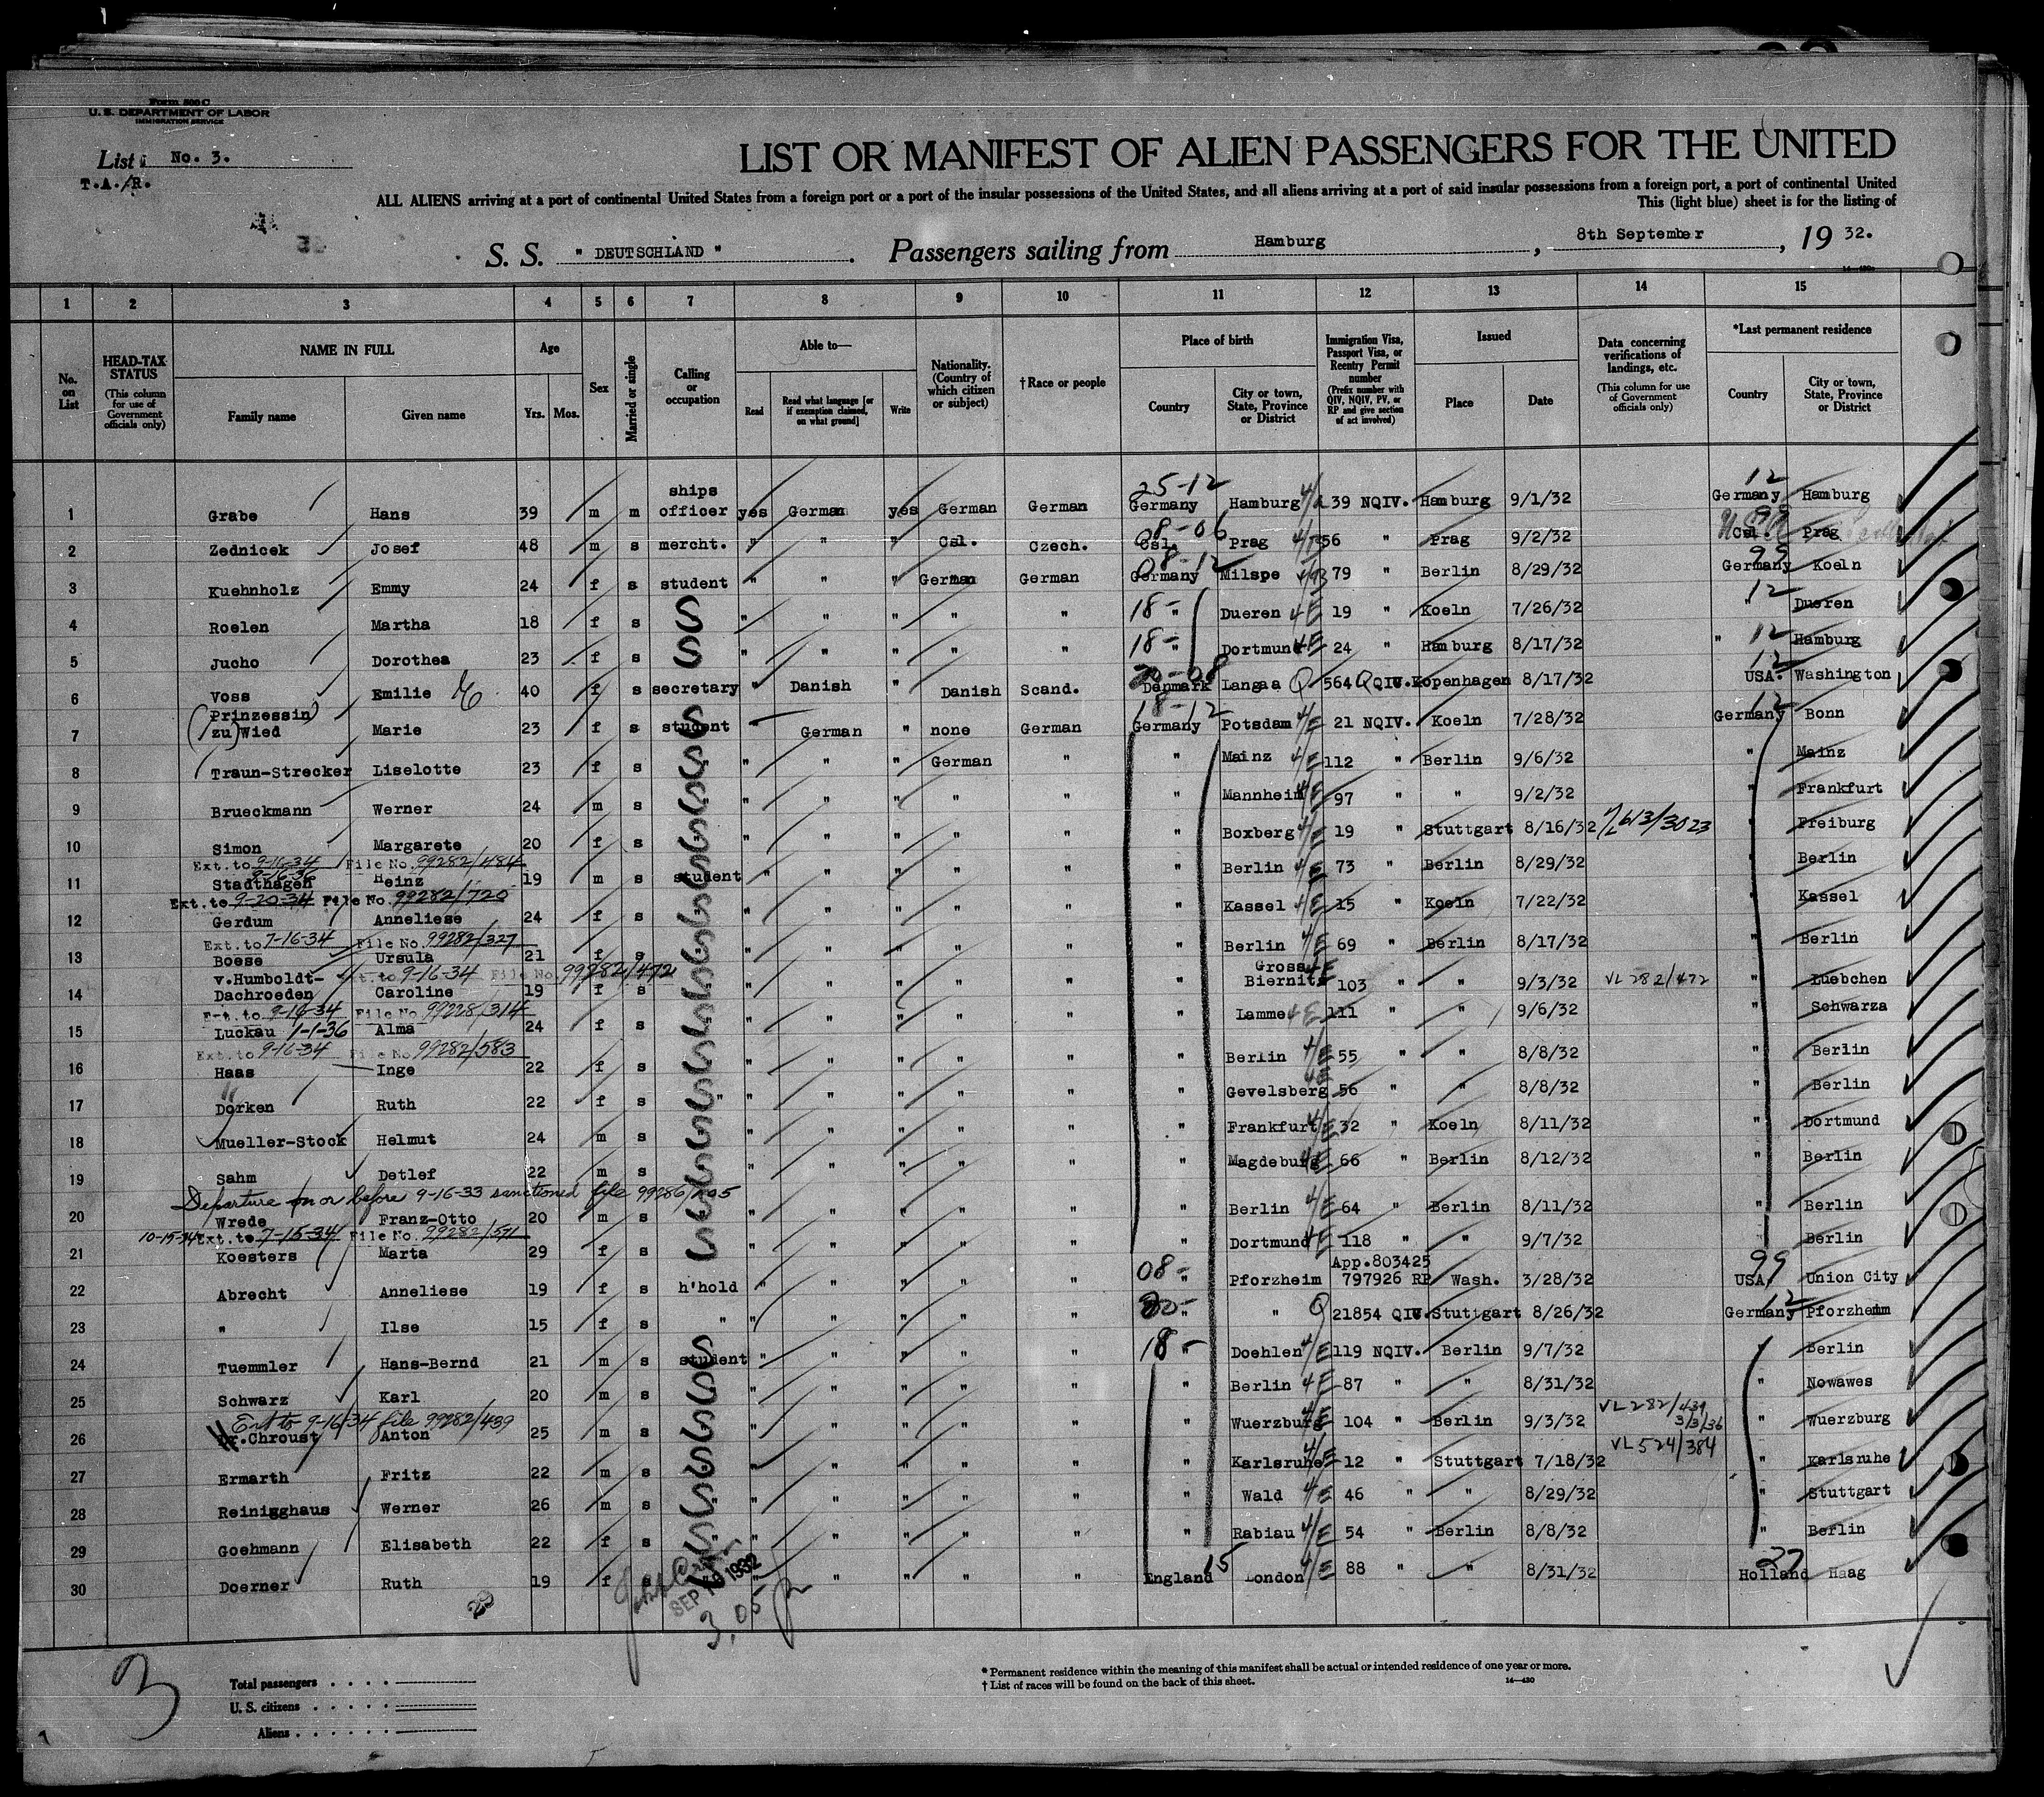 Form 500 C
U. S. DEPARTMENT OF LABOR
IMMIGRATION SERVICE
List No. 3.
T.A./R.
LIST OR MANIFEST OF ALIEN PASSENGERS FOR THE UNITED
ALL ALIENS arriving at a port of continental United States from a foreign port or a port of the insular possessions of the United States, and all aliens arriving at a port of said insular possessions from a foreign port, a port of continental United
This (light blue) sheet is for the listing of
S. S. " DEUTSCHLAND " . Passengers sailing from Hamburg , 8th September , 19 32.
1 2 3 4 5 6 7 8 9 10 11 12 13 14 15
No. on List
HEAD-TAX STATUS (This column for use of Government officials only)
NAME IN FULL Family name Given name
Age Yrs. Mos.
Sex
Married or single
Calling or occupation
Able to— Read Read what language [or if exemption claimed, on what ground] Write
Nationality. (Country of which citizen or subject)
†Race or people
Place of birth Country City or town, State, Province or District
Immigration Visa, Passport Visa, or Reentry Permit number (Prefix number with QIV, NQIV, PV, or RP and give section of act involved)
Issued Place Date
Data concerning verifications of landings, etc. (This column for use of Government officials only)
*Last permanent residence Country City or town, State, Province or District
25-12 12
1 Grabe Hans 39 m m ships officer yes German yes German German Germany Hamburg 39 NQIV. Hamburg 9/1/32 Germany Hamburg
08-06 99
2 Zednicek Josef 48 m s mercht. " " " Csl. Czech. Csl. Prag 56 " Prag 9/2/32 Csl. Prag
08-12 99
3 Kuehnholz Emmy 24 f s student " " " German German Germany Milspe 79 " Berlin 8/29/32 Germany Koeln
4 Roelen Martha 18 f s S " " " " " 18- " Dueren 4E 19 " Koeln 7/26/32 12 " Dueren
5 Jucho Dorothea 23 f s S " " " " " 18- " Dortmund 4E 24 " Hamburg 8/17/32 " 12 Hamburg
20-08 12
6 Voss Emilie 40 f s secretary " Danish " Danish Scand. Denmark Langaa Q 564 QIV. Kopenhagen 8/17/32 USA. Washington
18-12 12
7 (Prinzessin) (zu) Wied Marie 23 f s student German " none German Germany Potsdam 4E 21 NQIV. Koeln 7/28/32 Germany Bonn
8 Traun-Strecker Liselotte 23 f s " " " German " " Mainz 4E 112 " Berlin 9/6/32 " Mainz
9 Brueckmann Werner 24 m s " " " " " " Mannheim 4E 97 " " 9/2/32 " Frankfurt
10 Simon Margarete 20 f s " " " " " " Boxberg 4E 19 " Stuttgart 8/16/32 613/3023 " Freiburg
Ext. to 9-16-34 File No. 99282/484
11 Stadthagen Heinz 19 m s student " " " " " " Berlin 4E 73 " Berlin 8/29/32 " Berlin
Ext. to 9-20-34 File No. 99282/720
12 Gerdum Anneliese 24 f s " " " " " " Kassel 4E 15 " Koeln 7/22/32 " Kassel
Ext. to 7-16-34 File No. 99282/327
13 Boese Ursula 21 f s " " " " " " Berlin 4E 69 " Berlin 8/17/32 " Berlin
Ext. to 9-16-34 File No. 99282/472
14 v.Humboldt-Dachroeden Caroline 19 f s " " " " " " Gross Biernitz 103 " " 9/3/32 VL 282/472 " Luebchen
Ext. to 9-16-34 File No. 99228/314
15 Luckau 1-1-36 Alma 24 f s " " " " " " Lamme 4E 111 " " 9/6/32 " Schwarza
Ext. to 9-16-34 File No. 99282/583
16 Haas Inge 22 f s " " " " " " Berlin 4E 55 " " 8/8/32 " Berlin
17 Dorken Ruth 22 f s " " " " " " Gevelsberg 4E 56 " " 8/8/32 " Berlin
18 Mueller-Stock Helmut 24 m s " " " " " " Frankfurt 4E 32 " Koeln 8/11/32 " Dortmund
19 Sahm Detlef 22 m s " " " " " " Magdeburg 4E 66 " Berlin 8/12/32 " Berlin
Departure on or before 9-16-33 sanctioned file
20 Wrede Franz-Otto 20 m s " " " " " " Berlin 4E 64 " Berlin 8/11/32 " Berlin
10-15-34 Ext. to 7-15-34 File No. 99282/591
21 Koesters Marta 29 f s " " " " " " Dortmund 4E 118 " " 9/7/32 " Berlin
22 Abrecht Anneliese 19 f s h'hold " " " " " 08- " Pforzheim App.803425 797926 RP Wash. 3/28/32 99 USA. Union City
23 " Ilse 15 f s " " " " " " 20- " " Q 21854 QIV. Stuttgart 8/26/32 12 Germany Pforzheim
24 Tuemmler Hans-Bernd 21 m s student " " " " " 18- " Doehlen 4E 119 NQIV. Berlin 9/7/32 " Berlin
25 Schwarz Karl 20 m s " " " " " " Berlin 4E 87 " " 8/31/32 " Nowawes
Ext to 9-16-34 file 99282/439
26 Dr.Chroust Anton 25 m s " " " " " " Wuerzburg 4E 104 " Berlin 9/3/32 VL 282/439 3/3/36 " Wuerzburg
27 Ermarth Fritz 22 m s " " " " " " Karlsruhe 4E 12 " Stuttgart 7/18/32 VL 524/384 " Karlsruhe
28 Reinigghaus Werner 26 m s " " " " " " Wald 4E 46 " " 8/29/32 " Stuttgart
29 Goehmann Elisabeth 22 f s " " " " " " Rabiau 4E 54 " Berlin 8/8/32 " Berlin
30 Doerner Ruth 19 f " " " " " England 15 London 4E 88 " " 8/31/32 27 Holland Haag
SEP 1932
3.05
3
Total passengers
U. S. citizens
Aliens
* Permanent residence within the meaning of this manifest shall be actual or intended residence of one year or more.
† List of races will be found on the back of this sheet.
14—430